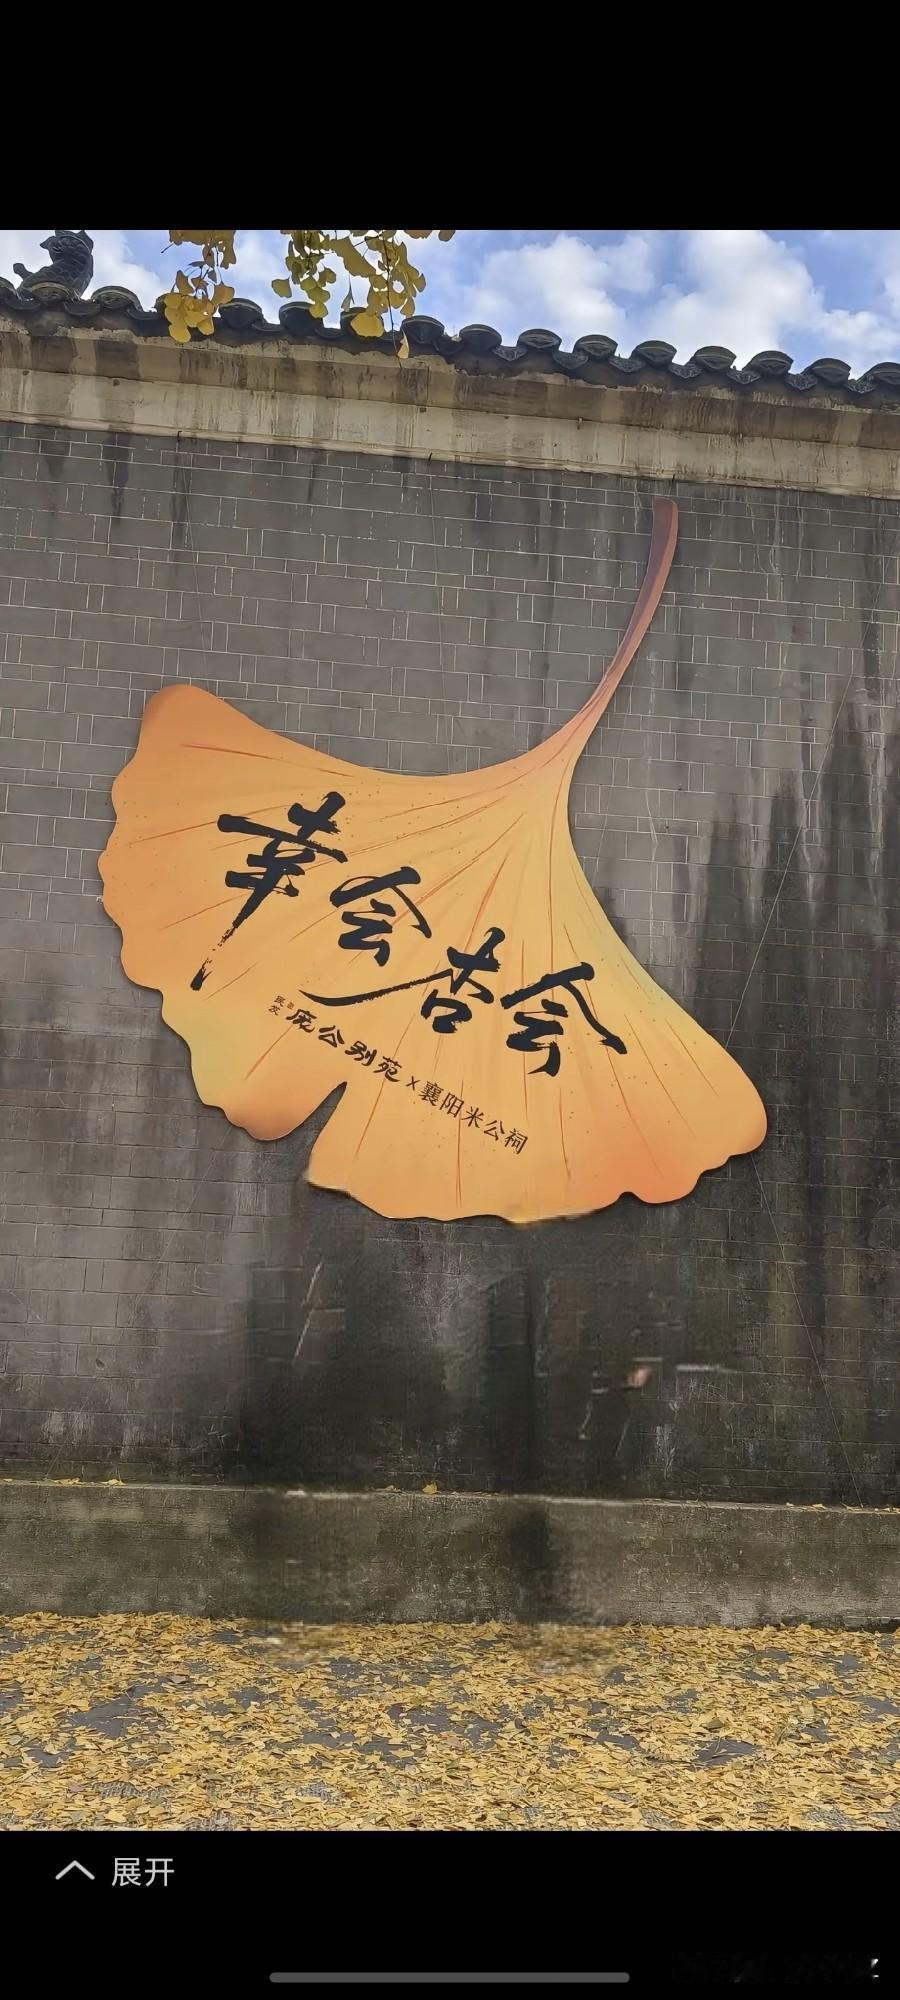 幸会杏会
民发 庞公别苑 x 襄阳米公祠
展开